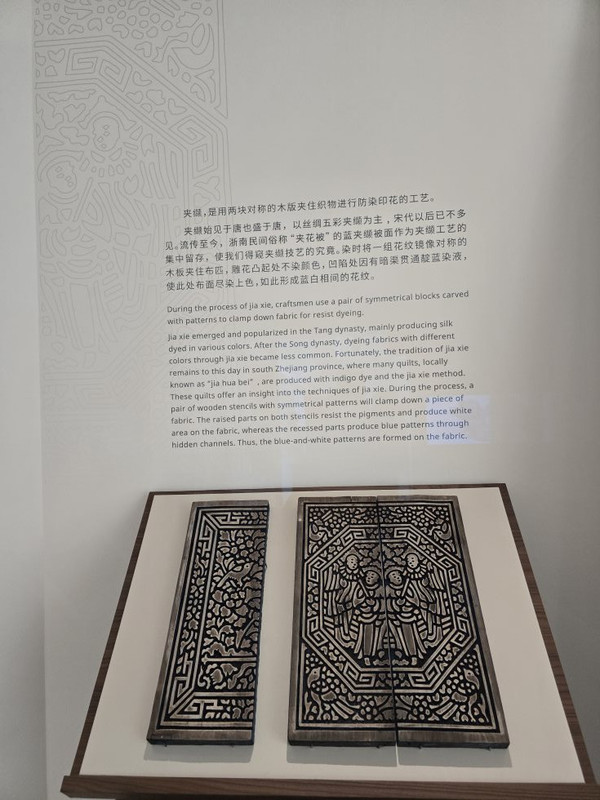 夹缬,是用两块对称的木版夹住织物进行防染印花的工艺。
夹缬始见于唐也盛于唐，以丝绸五彩夹缬为主，宋代以后已不多
见。流传至今，浙南民间俗称“夹花被”的蓝夹缬被面作为夹缬工艺的
集中留存，使我们得窥夹缬技艺的究竟。染时将一组花纹镜像对称的
木板夹住布匹，雕花凸起处不染颜色，凹陷处因有暗渠贯通靛蓝染液，
使此处布面尽染上色，如此形成蓝白相间的花纹。
During the process of jia xie, craftsmen use a pair of symmetrical blocks carved
with patterns to clamp down fabric for resist dyeing.
Jia xie emerged and popularized in the Tang dynasty, mainly producing silk
dyed in various colors. After the Song dynasty, dyeing fabrics with different
colors through jia xie became less common. Fortunately, the tradition of jia xie
remains to this day in south Zhejiang province, where many quilts, locally
known as “jia hua bei”, are produced with indigo dye and the jia xie method.
These quilts offer an insight into the techniques of jia xie. During the process, a
pair of wooden stencils with symmetrical patterns will clamp down a piece of
fabric. The raised parts on both stencils resist the pigments and produce white
area on the fabric, whereas the recessed parts produce blue patterns through
hidden channels. Thus, the blue-and-white patterns are formed on the fabric.